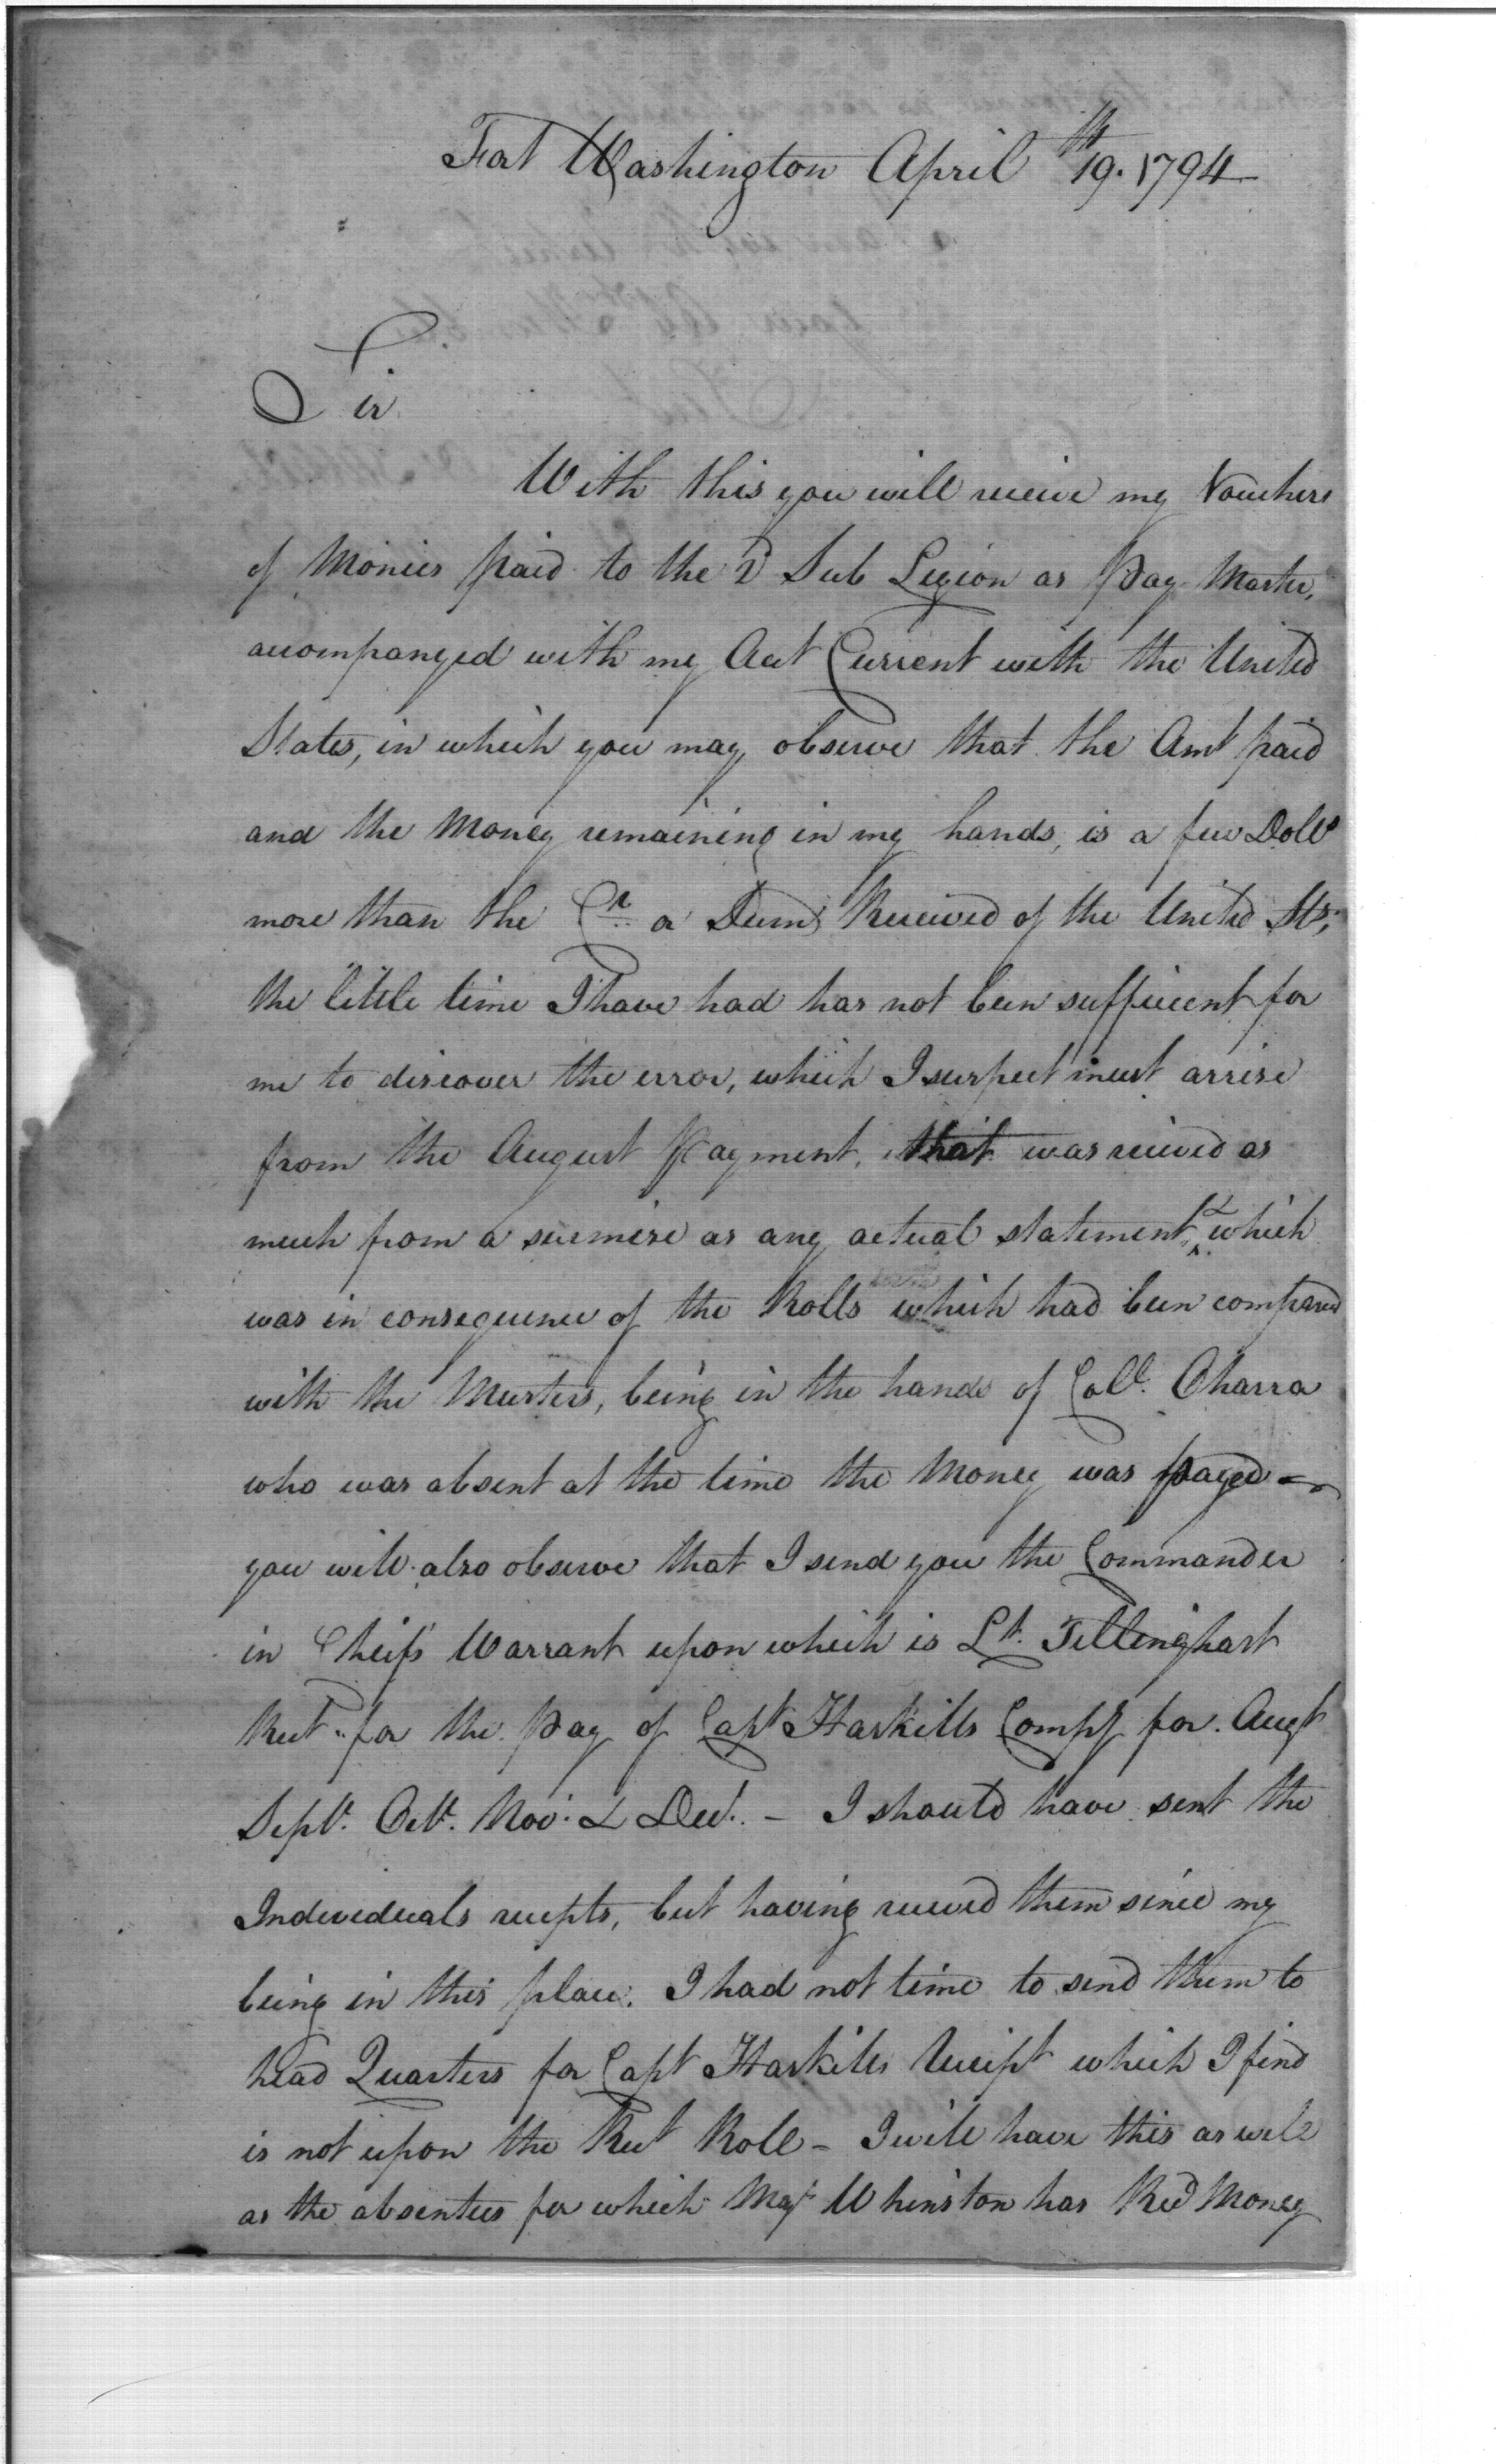 Fort Washington April 19th. 1794
Sir
With this you will receive my Vouchers
of Monies paid to the 2d Sub Legion as Pay Master,
accompanyed with my Acct Current with the United
States, in which you may observe that the Amt paid
and the Money remaining in my hands, is a few Dolls
more than the Cr. or Sum Received of the United Sts;
the little time I have had has not been sufficient for
me to discover the error, which I suspect must arrise
from the August Payment, that was received as
much from a surmise as any actual statement, & which
was in consequence of the Rolls which had been compared
with the Musters, being in the hands of Coll. Oharra
who was absent at the time the Money was payed
you will also observe that I send you the Commander
in Cheifs Warrant upon which is Lt. Tillinghast
Rect. for the Pay of Capt Haskills Compy for. Augt
Sept. Oct. Nov. & Dec. - I should have sent the
Individuals recepts, but having received them since my
being in this place. I had not time to send them to
head Quarters for Capt Haskills Receipt which I find
is not upon the Rect Roll - I will have this as well
as the absentees for which Majr Whinston has Recd Money